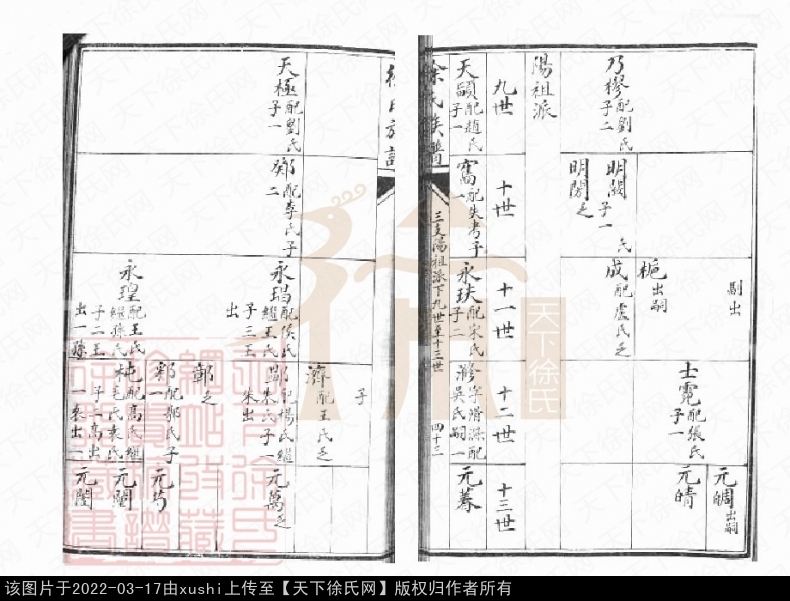 乃樛配劉氏
子二
明闋子一
氏
明閟乏
剔出
梔出嗣
成配盧氏乏
士霓配張氏
子一
元啁出嗣
元晴
陽祖派
九世
十世
十一世
十二世
十三世
天頤配趙氏
子一
配失考子
一
永玞配宋氏
子二
滲字滑溁配
吳氏嗣一
元蓦
徐氏族譜
三支陽祖派下九世至十三世
四十三
天極配劉氏
子一
鄭配李氏子
二
永琩配侯氏
繼王氏
子三王
出
永瑝配王氏
繼徐氏
子二王
出一孫
出一
子
濟配王氏乏
配楊氏繼
朱氏子一
朱出
鄣乏
鄴配郭氏子
一
配高氏繼
毛氏袁氏
子二高出
一袁出一
元萬乏
元芶
元闈
元閿
天下徐氏
天下徐氏网
该图片于2022-03-17由xushi上传至【天下徐氏网】版权归作者所有